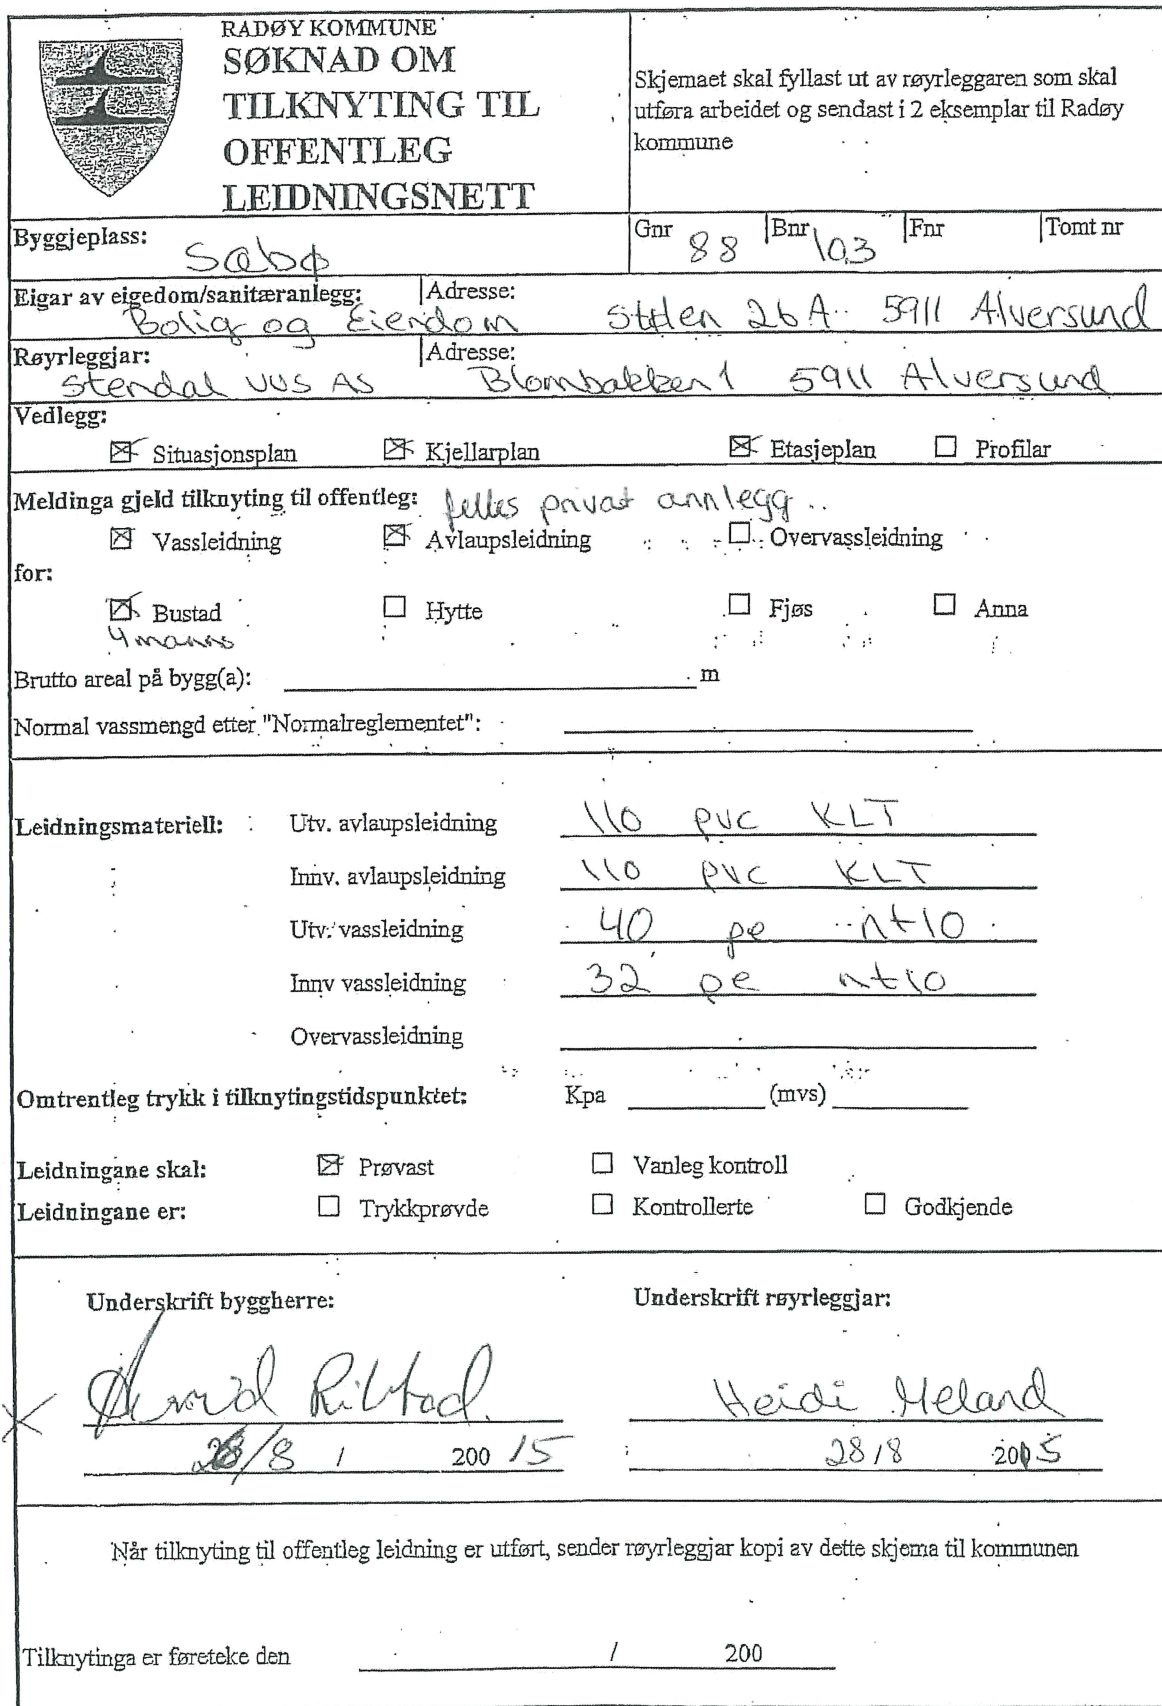 RADØY KOMMUNE
SØKNAD OM
TILKNYTING TIL
OFFENTLEG
LEIDNINGSNETT
Skjemaet skal fyllast ut av røyrleggaren som skal
utføra arbeidet og sendast i 2 eksemplar til Radøy
kommune
Byggjeplass: Sæbø Gnr 88 Bnr 103 Fnr Tomt nr
Eigar av eigedom/sanitæranlegg: Adresse:
Bolig og Eiendom 26A 5911 Alversund
Røyrleggjar: Adresse:
Stendal VVS AS Blombakken 1 5911 Alversund
Vedlegg:
☒ Situasjonsplan ☒ Kjellarplan ☒ Etasjeplan ☐ Profilar
Meldinga gjeld tilknyting til offentleg: felles privat annlegg..
☒ Vassleidning ☒ Avlaupsleidning ☐ Overvassleidning
for:
☒ Bustad ☐ Hytte ☐ Fjøs ☐ Anna
4 manns
Brutto areal på bygg(a): m
Normal vassmengd etter "Normalreglementet":
Leidningsmateriell: Utv. avlaupsleidning 110 pvc KLT
Innv. avlaupsleidning 110 pvc KLT
Utv. vassleidning 40 pe nt10
Innv vassleidning 32 pe nt10
Overvassleidning
Omtrentleg trykk i tilknytingstidspunktet: Kpa (mvs)
Leidningane skal: ☒ Prøvast ☐ Vanleg kontroll
Leidningane er: ☐ Trykkprøvde ☐ Kontrollerte ☐ Godkjende
Underskrift byggherre: Underskrift røyrleggjar:
X Heidi Meland
28/8 / 200 15 28/8 2015
Når tilknyting til offentleg leidning er utført, sender røyrleggjar kopi av dette skjema til kommunen
Tilknytinga er føreteke den / 200